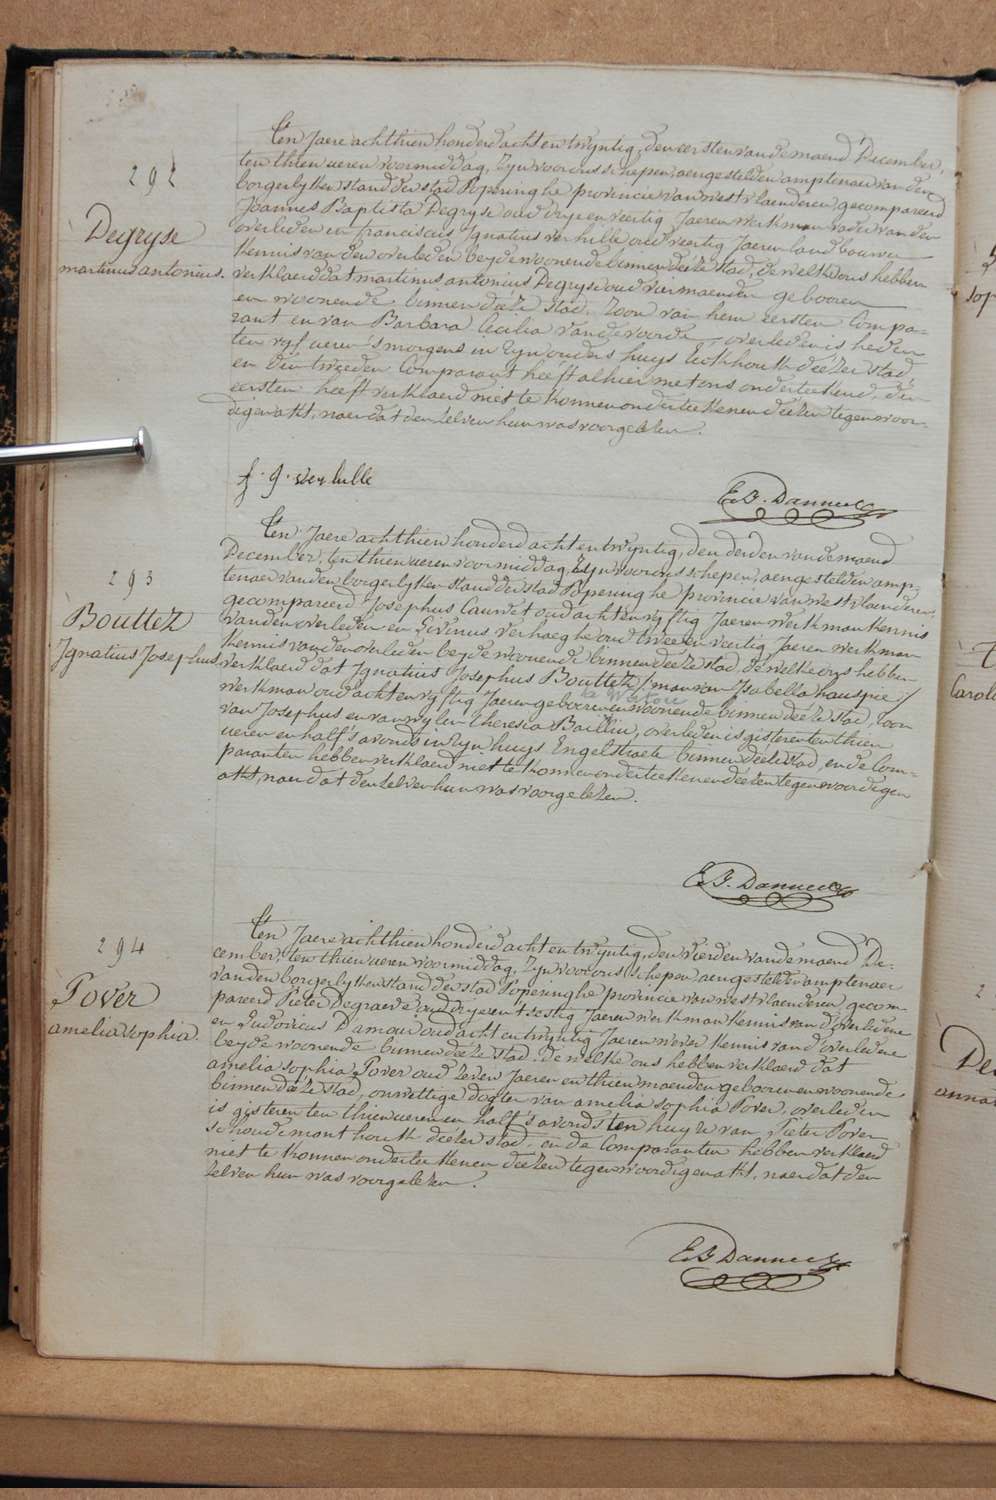 292
Degryse
martinus antonius.
Ten Jaere achthien honderd acht en twyntig, den eersten van de maend December,
ten thien ueren voormiddag, zyn voor ons schepen, aengestelden amptenaer van den
borgerlyken stand der stad Poperinghe provincie van westvlaenderen, gecompareerd
Joannes Baptista Degryse oud drye en veertig Jaeren werkman vader van den
overleden en franciscus Ignatius verhille oud veertig Jaeren landbouwer
Kennis van den overleden beyde woonende binnen deéze stad, de welke ons hebben
verklaerd dat martinus antonius Degryse oud vier maenden gebooren
en woonende binnen deéze stad, zoon van hem eersten Compa-
rant en van Barbara Cecilia vandevoorde, overleden is heden
ten vyf ueren 's morgens in zyn ouders huys Eekhouck deézer stad,
en den tweeden Comparant heeft alhier met ons onderteekend, den
eersten heeft verklaerd niet te konnen onderteekenen deézen tegenwoor-
digen akt, naer dat den zelven hun was voorgelezen.
f. J. Verhille
E. B. Danneel
293
Bouttez
Ignatius Josephus.
Ten Jaere achthien honderd acht en twyntig, den derden van de maend
December, ten thien ueren voormiddag, zyn voor ons schepen, aengestelden amp-
tenaer van den borgerlyken stand der stad Poperinghe provincie van westvlaenderen,
gecompareerd Josephus Cauwet oud acht en vyftig Jaeren werkman Kennis
van den overleden en Livinus verhaeghe oud twee en veertig Jaeren werkman
Kennis van den overleden beyde woonende binnen deéze stad de welke ons hebben
verklaerd dat Ignatius Josephus Bouttez /: man van Isabella hauspie :/
werkman oud acht en vyftig Jaeren gebooren
te Watou
en woonende binnen deéze stad, zoon
van Josephus en van wylen Theresia Baillin, overleden is gisteren ten thien
ueren en half 's avonds in zyn huys Engelstraete binnen deéze stad, en de Com-
paranten hebben verklaerd niet te konnen onderteekenen deézen tegenwoordigen
akt, naer dat den zelven hun was voorgelezen.
E. B. Danneel
294
Pover
amelia sophia.
Ten Jaere achthien honderd acht en twyntig, den vierden van de maend De-
cember, ten thien ueren voormiddag, zyn voor ons schepen, aengestelden amptenaer
van den borgerlyken stand der stad Poperinghe provincie van westvlaenderen gecom-
pareerd Pieter Degraeve oud drye en t'sestig Jaeren werkman Kennis van d'overledene
en Ludovicus Damour oud acht en twyntig Jaeren wever Kennis van d'overledene
beyde woonende binnen deéze stad, de welke ons hebben verklaerd dat
amelia sophia Pover oud zeven Jaeren en thien maenden gebooren en woonende
binnen deéze stad, onwettige dogter van amelia sophia Pover, overleden
is gisteren ten thien ueren en half 's avonds ten huyze van Pieter Pover
schoudemonthouck deézer stad, en de Comparanten hebben verklaerd
niet te konnen onderteekenen deézen tegenwoordigen akt, naer dat den
zelven hun was voorgelezen.
E. B. Danneel